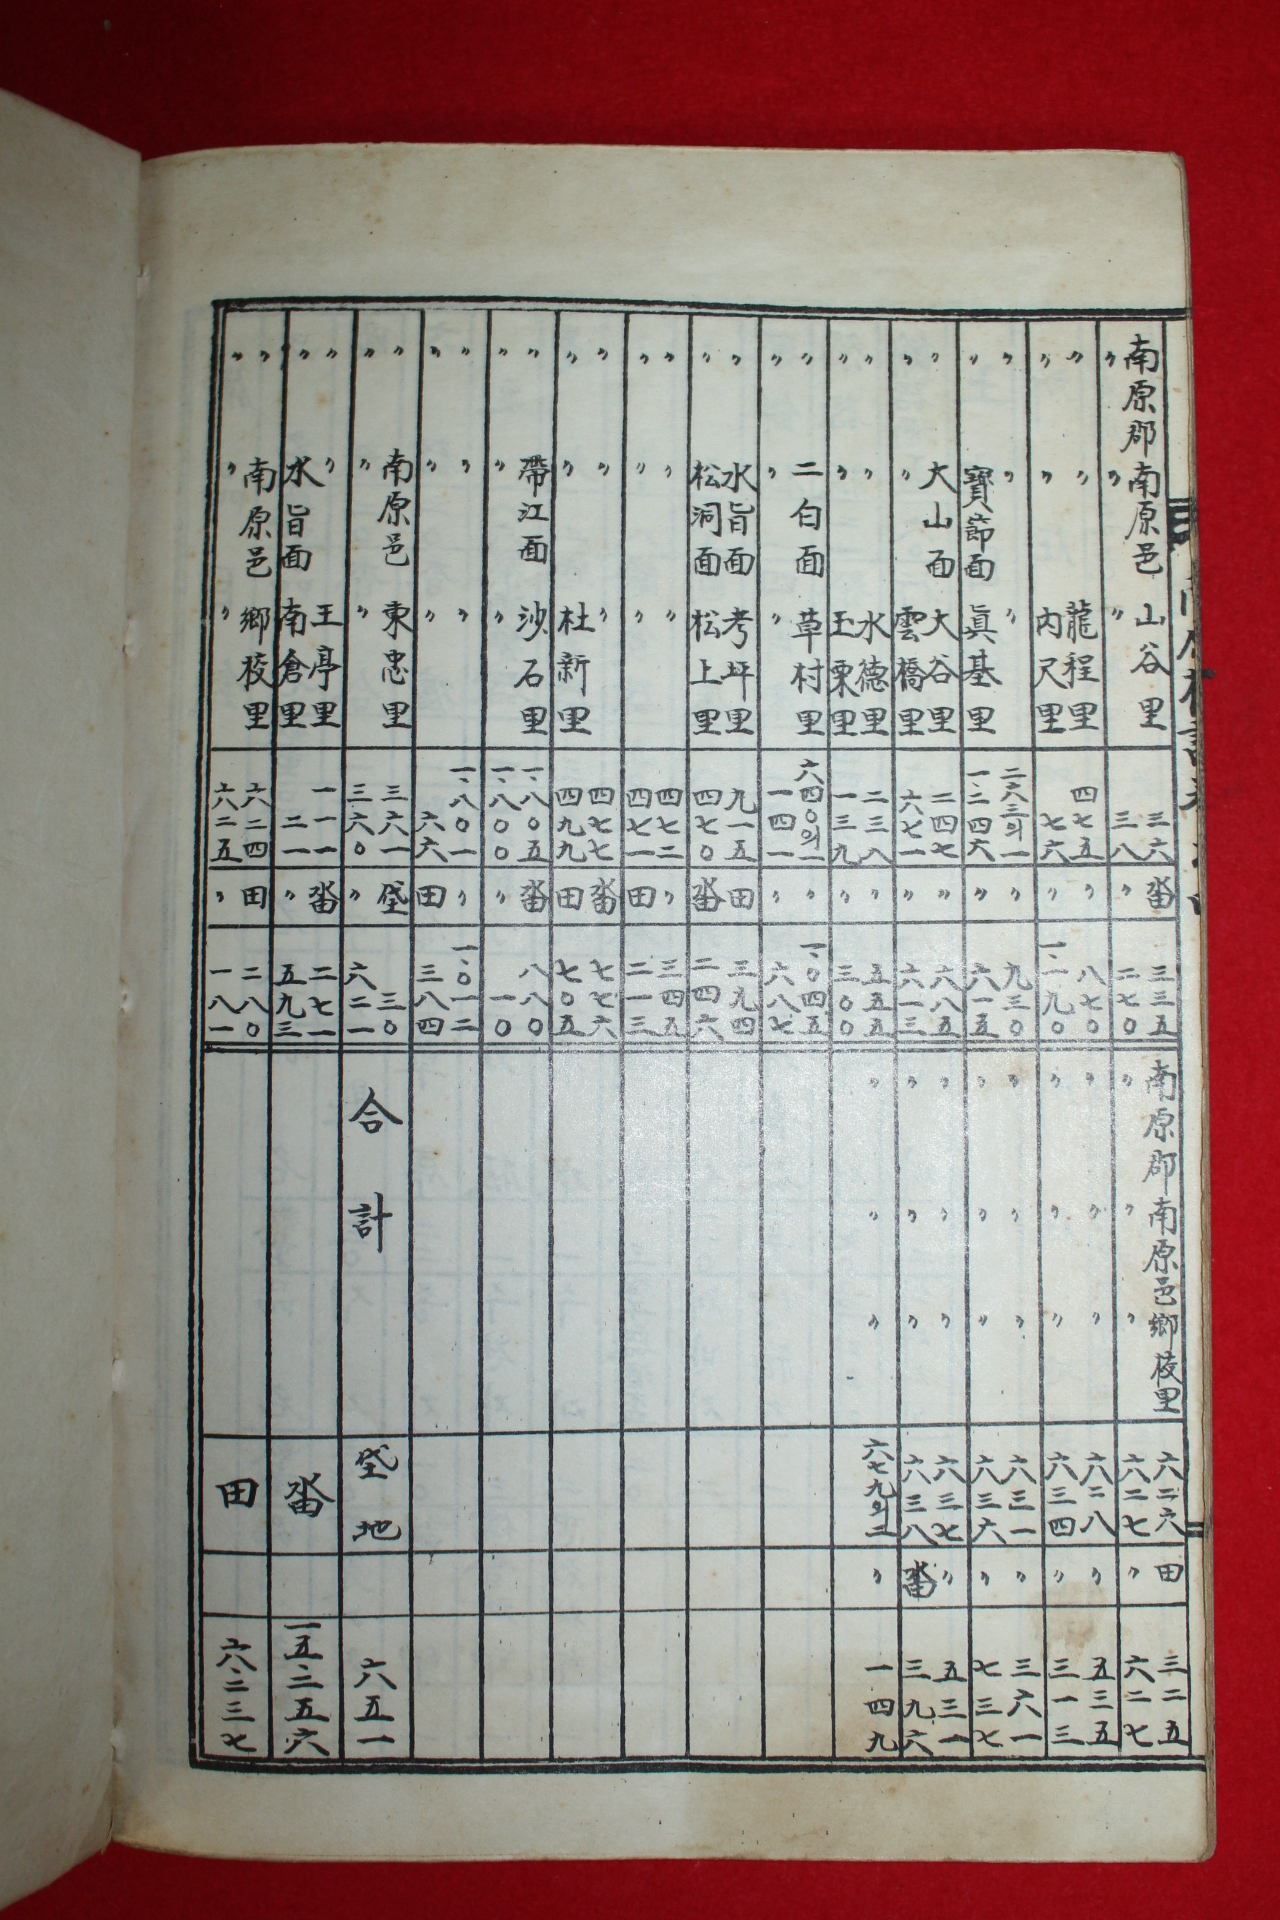 南原郡 南原邑 山谷里 三六 畓 三三五
〃 〃 〃 三八 〃 二七〇
〃 〃 龍程里 四七五 〃 八七〇
〃 〃 內尺里 七六 〃 一、一九〇
〃 〃 〃 二六三의一 〃 九三〇
〃 寶節面 眞基里 一、二四六 〃 六一五
〃 大山面 大谷里 二四七 〃 六八五
〃 〃 雲橋里 六七一 〃 六一三
〃 〃 水德里 二三八 〃 五五五
〃 〃 玉栗里 一三九 〃 三〇〇
〃 二白面 草村里 六四〇의一 〃 一、〇四五
〃 〃 〃 一四一 〃 六八七
〃 水旨面 考坪里 九一五 田 三九四
〃 松洞面 松上里 四七〇 畓 二四六
〃 〃 〃 四七二 〃 三四五
〃 〃 〃 四七一 田 二一三
〃 〃 〃 四七七 畓 七七六
〃 〃 杜新里 四九九 田 七〇五
〃 帶江面 沙石里 一、八〇五 畓 八八〇
〃 〃 一、八〇〇 〃 一〇
〃 〃 〃 一、八〇一 〃 一、〇一二
〃 〃 〃 六六 田 三八四
〃 南原邑 東忠里 三六一 垈 三〇
〃 〃 〃 三六〇 〃 六二一
〃 〃 王亭里 一一一 畓 二七一
〃 水旨面 南倉里 二一 〃 五九三
〃 南原邑 鄕校里 六二四 田 二八〇
〃 〃 〃 六二五 〃 一八一
南原郡 南原邑 鄕校里 六二六 田 三二五
〃 〃 〃 六二七 〃 六二七
〃 〃 〃 六二八 〃 五三五
〃 〃 〃 六三四 〃 三一三
〃 〃 〃 六三一 〃 三六一
〃 〃 〃 六三六 〃 七三七
〃 〃 〃 六三七 〃 五三一
〃 〃 〃 六三八 畓 三九六
〃 〃 〃 六七九의二 〃 一四九
合計 垈地 六五一
畓 一五、二五六
田 六、二三七